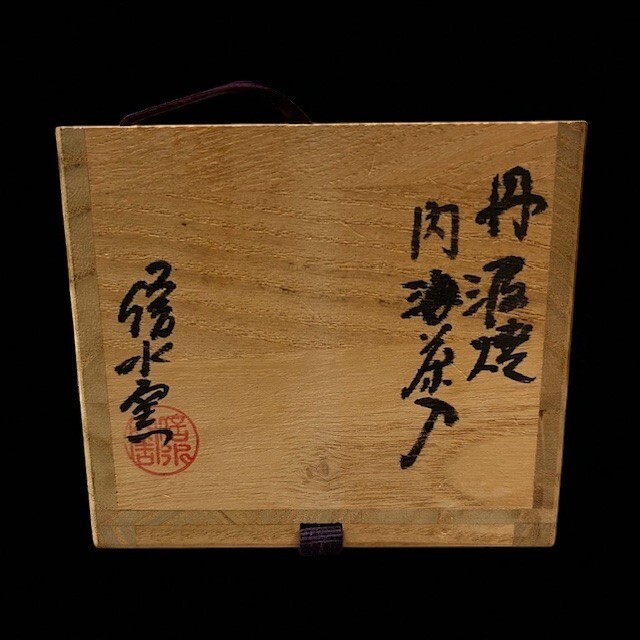 丹波焼
内海茶入
信水窯